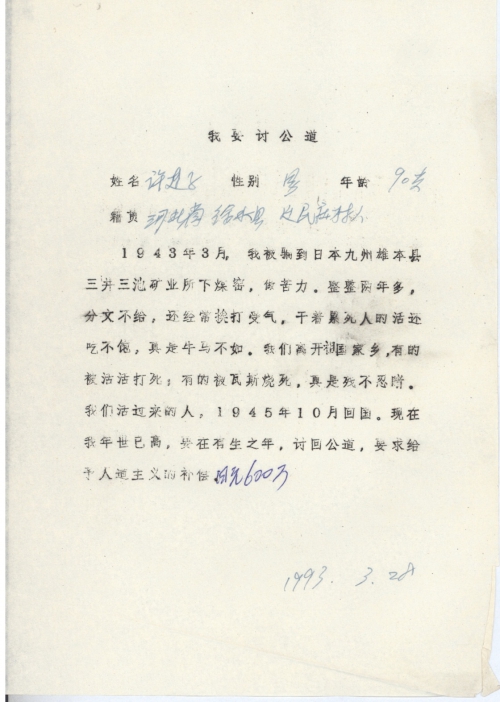 我要讨公道
姓名 许 性别 男 年龄 90岁
籍贯 河北省 徐水县 民 村人
1943年3月，我被骗到日本九州雄本县
三井三池矿业所下煤窑，做苦力。整整两年多，
分文不给，还经常挨打受气，干着累死人的活还
吃不饱，真是牛马不如。我们离开祖国家乡，有的
被活活打死；有的被瓦斯烧死，真是残不忍睹。
我们活过来的人，1945年10月回国。现在
我年世已高，要在有生之年，讨回公道，要求给
予人道主义的补偿。日元600万
1993. 3. 28